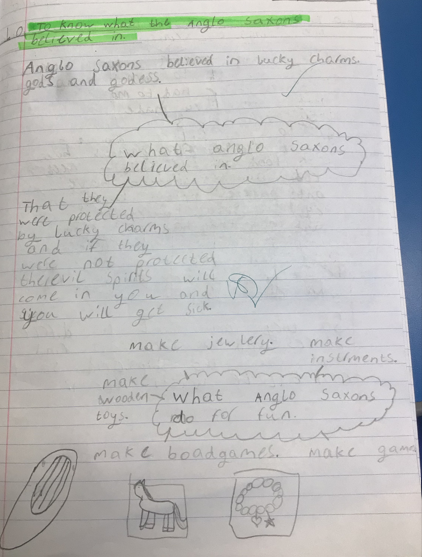 L.O To know what the Anglo Saxons
believed in.
Anglo Saxons believed in lucky charms
gods and godess.
what anglo saxons
believed in.
That they
were protected
by lucky charms
and if they
were not protected
the evil spirits will
come in you and
you will get sick.
make jewlery. make
instrments.
make
wooden
toys.
what Anglo Saxons
do for fun.
make boadgames. make game